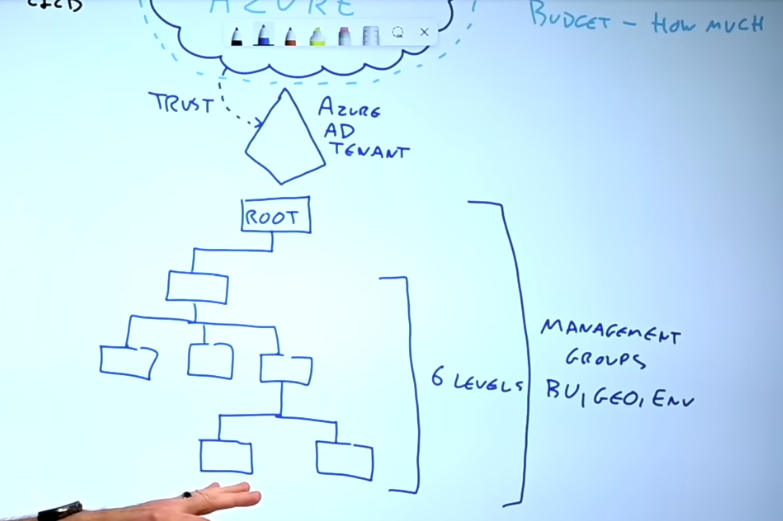 AZURE
BUDGET – HOW MUCH
TRUST
AZURE
AD
TENANT
ROOT
6 LEVELS
MANAGEMENT
GROUPS
BU, GEO, ENV